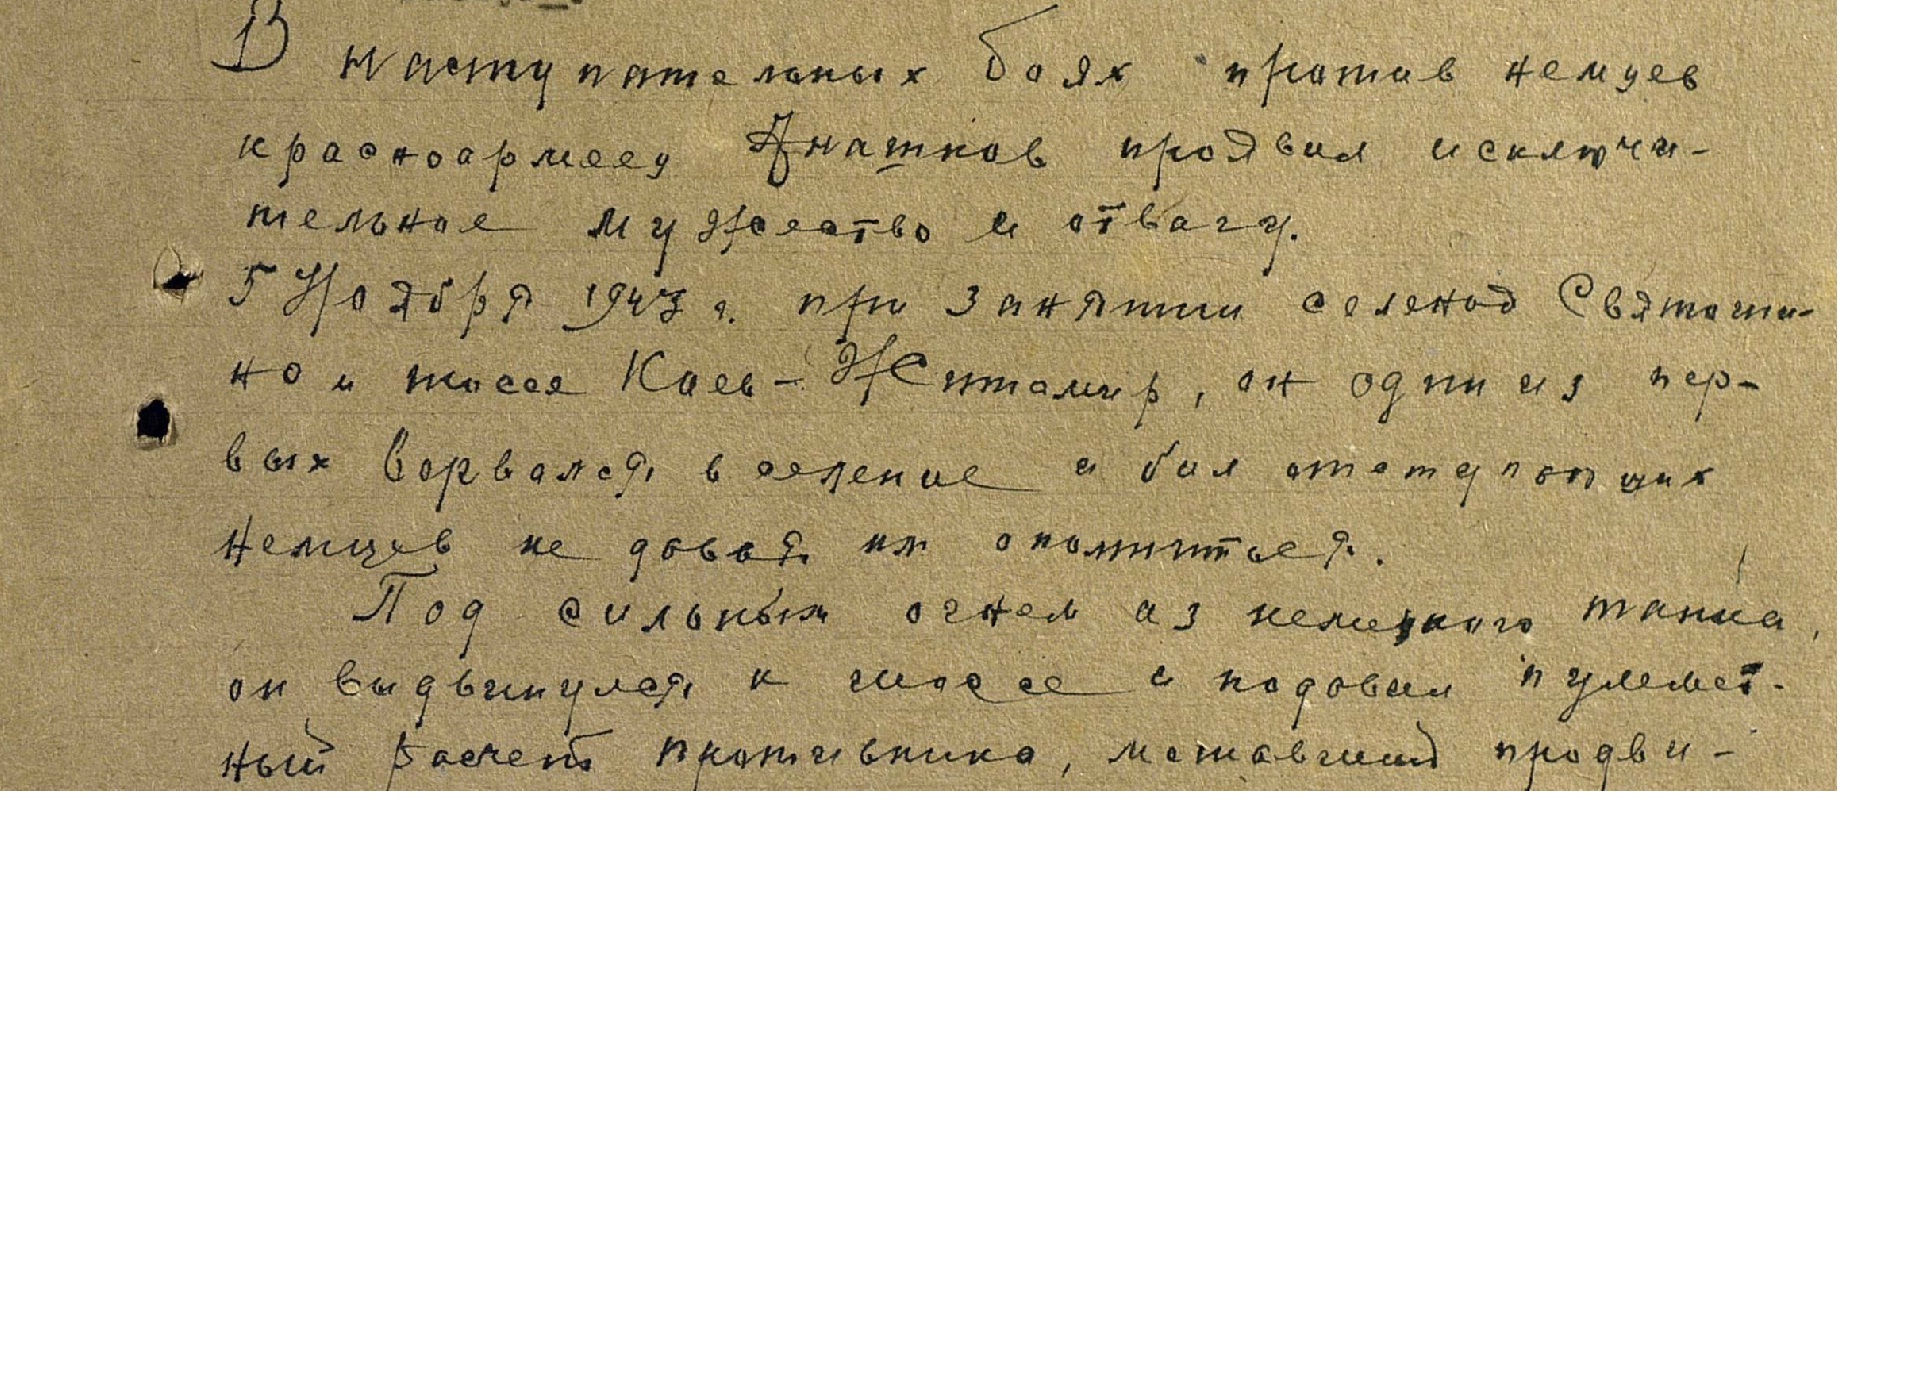 В наступательных боях против немцев
красноармеец Анатков проявил исключи-
тельное мужество и отвагу.
5 Ноября 1943 г. при занятии селений Святоши-
но и шоссе Киев - Житомир, он один из пер-
вых ворвался в селение и бил отступающих
немцев не давая им опомнится.
Под сильным огнем из немецкого танка,
он выдвинулся к шоссе и подавил пулемет-
ный расчет противника, мешавший продви-